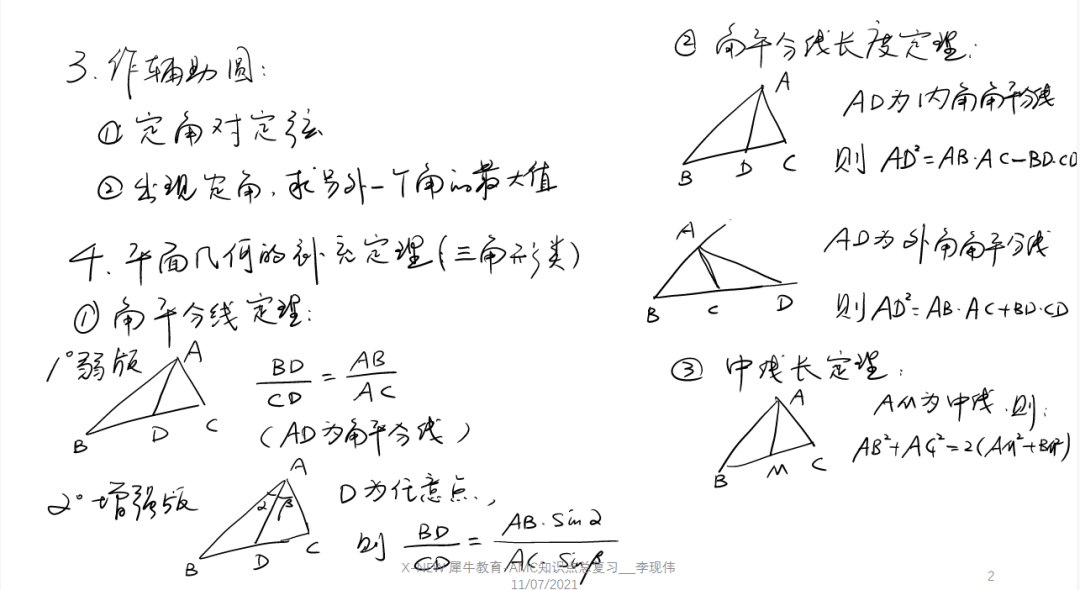 3. 作辅助圆:
① 定角对定弦
② 出现定角,求另外一个角的最大值
4. 平面几何的补充定理(三角形类)
① 角平分线定理:
1° 弱版
A
B
D
C
BD/CD = AB/AC
(AD为角平分线)
2° 增强版
A
α β
B
D
C
D为任意点,
则 BD/CD = AB·sinα/AC·sinβ
② 角平分线长度定理:
A
B
D
C
AD为内角角平分线
则 AD²=AB·AC−BD·CD
A
B
C
D
AD为外角角平分线
则 AD²=AB·AC+BD·CD
③ 中线长定理:
A
B
M
C
AM为中线,则:
AB²+AC²=2(AM²+BM²)
X-NEW 犀牛教育 AMC知识点总复习__李现伟
11/07/2021
2